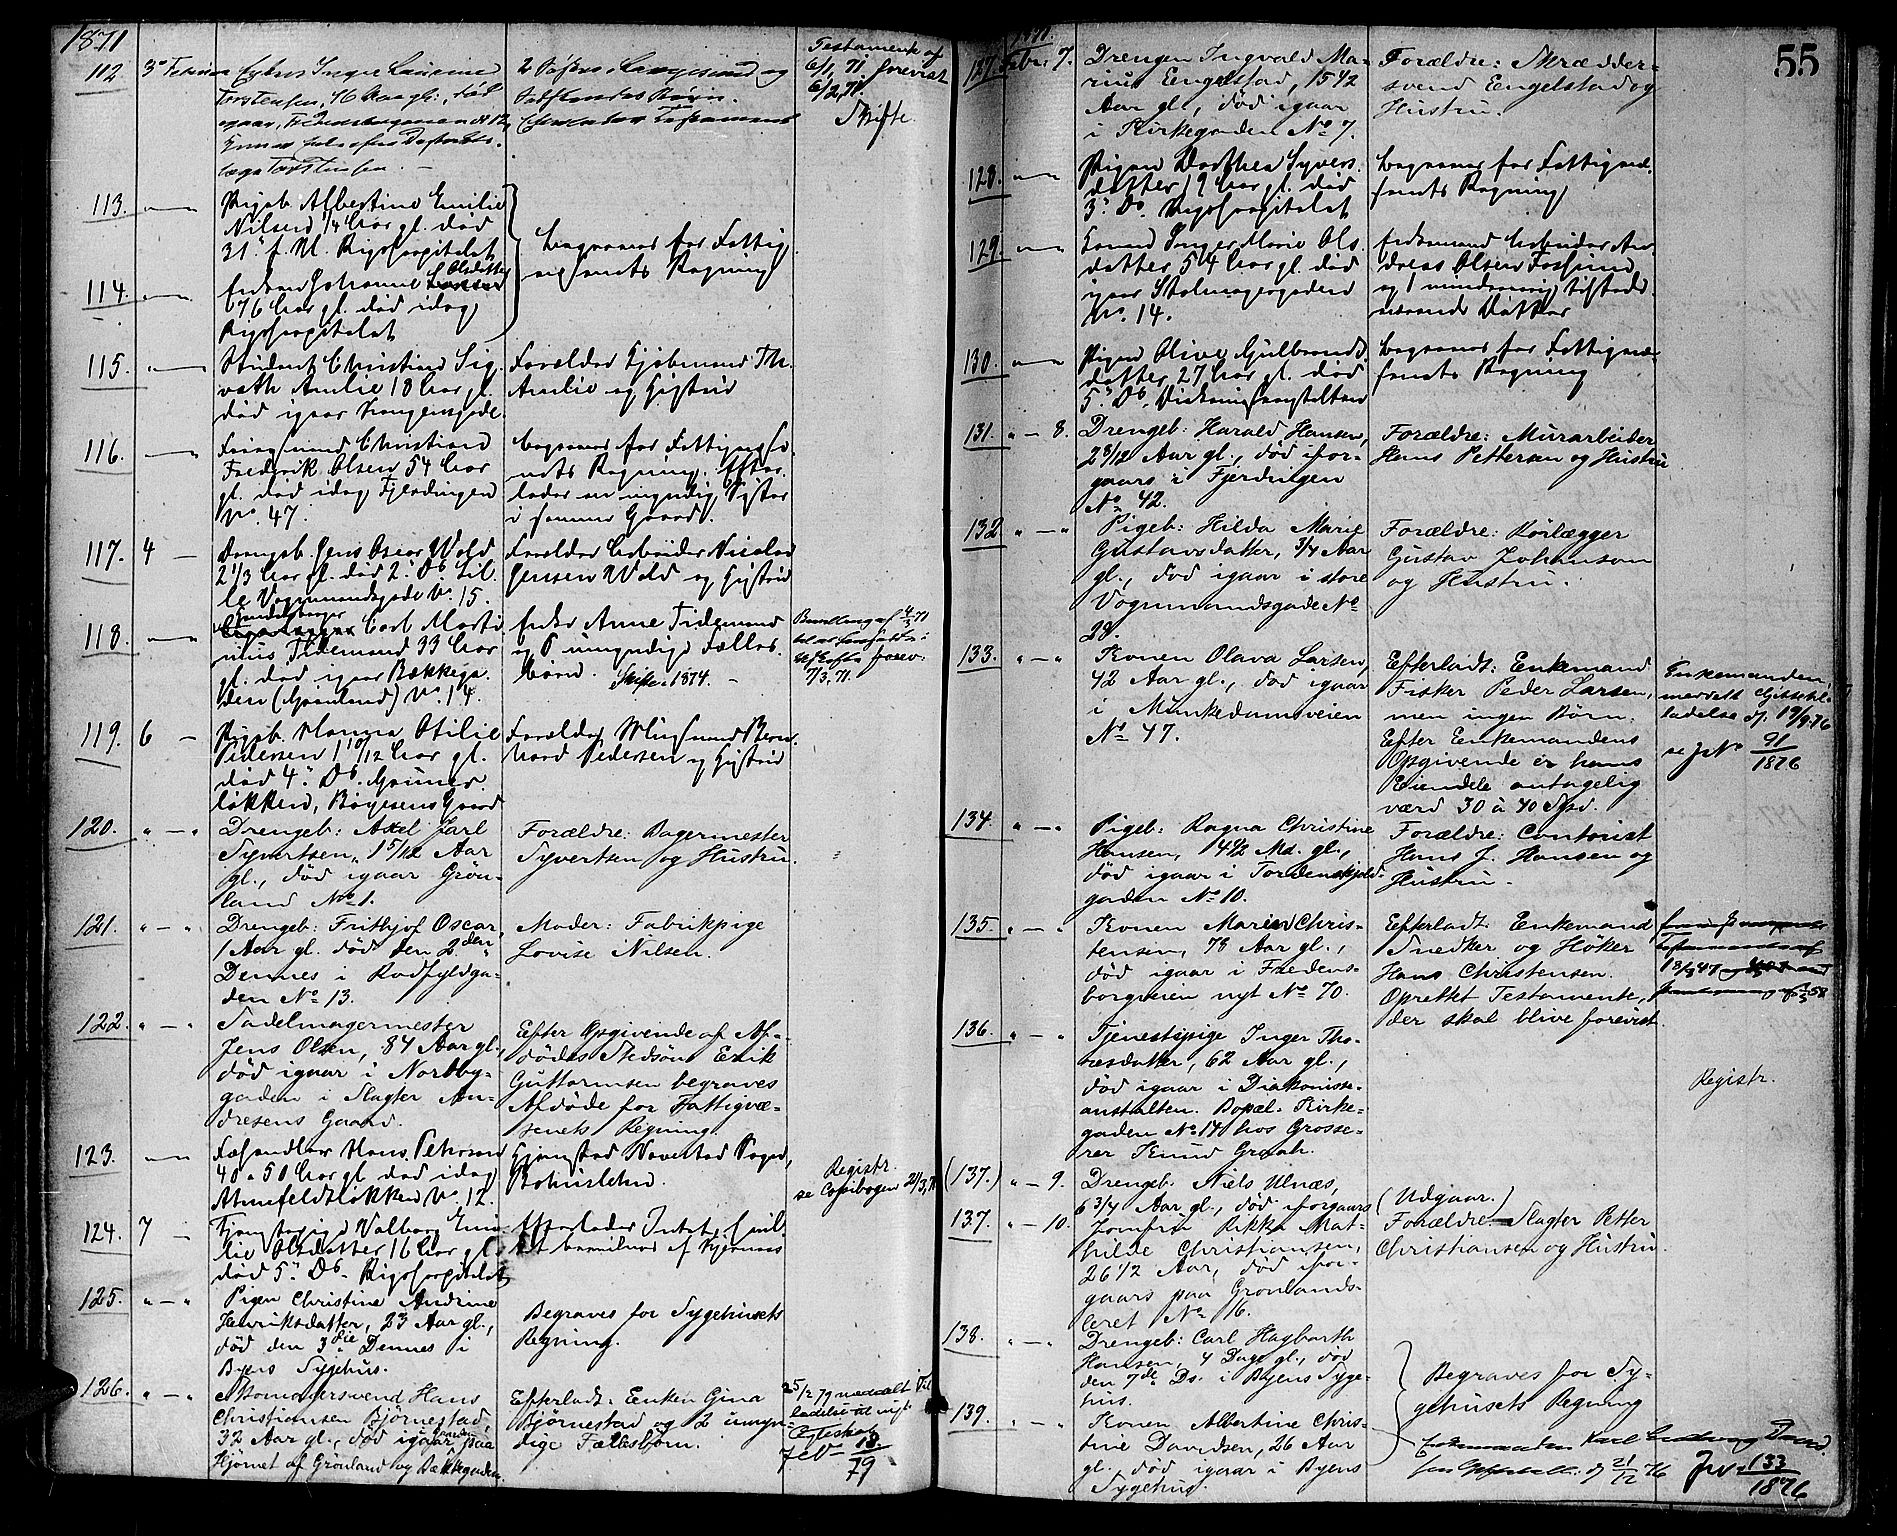 1871
112 3die Februar
Torstensen, 46 Aar gl., død
2 Søstre, Langesund og
Testament af
6/1 71 forevist
6/2 71.
Skifte.
113.
Pigeb. Albertine Emilie
Nilsen 1/4 Aar gl. død
31. f. M. Rigshospitalet
begraves for Fattig-
væsenets Regning
114.
Enken Johanne Olsdatter
676 Aar gl. død idag
Rigshospitalet
115.
Student Christian Sig-
vath Amlie 18 Aar gl.
død igaar
Forældre Kjøbmand Th.
Amlie og Hustru
116.
Christian
Fredrik Olsen 54 Aar
gl. død idag Fjerdingen
No. 47.
begraves for Fattigvæse-
nets Regning. Efter-
lader en myndig Søster
i samme Gaard.
117. 4 —
Drengeb. Jens Oscar Wold
2 1/3 Aar gl. død 2. Ds. Lil-
le Vognmandsgade No. 15.
Forældre Arbeider Nicolai
Jensen Wold og Hustru
118.
Carl Marti-
nius Tidemand 33 Aar
gl. død igaar Bækkega-
den (Grønland) No. 14.
Enke Anne Tidemand
og umyndige Fælles-
børn. Skifte 1874. —
Bevilling af 4/3 71
7/3, 71.
119. 6 —
Pigeb. Hanna Otilie
Pedersen 1 10/12 Aar gl.
død 4. Ds. Grüner-
løkken, Bøgesens Gaard
Forældre Bern-
hard Pedersen og Hustru
120. " — "
Drengeb: Axel Jarl
Syvertsen, 1 5/12 Aar
gl., død igaar Grøn-
land No 1.
Forældre: Bagermester
Syvertsen og Hustru.
121. " — "
Drengeb: Frithjof Oscar,
1 Aar gl. død den 2den
Dennes i Rodfyldga-
den No 13.
Moder: Fabrikpige
Lovise Nilsen.
122. " — "
Sadelmagermester
Jens Olsen, 84 Aar gl.,
død igaar i Nordby-
gaden i Slagter An-
dresens Gaard.
Efter Opgivende af Af-
dødes Stedsøn Erik
Guttormsen begraves
Afdøde for Fattigvæ-
senets Regning.
123.
Fæhandler Hans Pehrson
40 a 50 Aar gl død idag
Ahnefeldtsløkken No. 12.
Bohuslehn.
Registr.
se Copibogen 21/3, 71
124. 7 —
Tjenestepige Valborg Emi-
lie Olsdatter 16 Aar gl.
død 5. Ds. Rigshospitalet
Efterlader Intet,
125. " — "
Pigen Christine Andrine
Henriksdatter, 23 Aar gl.,
død den 3die Dennes i
Byens Sygehus.
Begraves for Sygehusets
Regning.
126. " — "
Skomagersvend Hans
Christiansen Bjørnestad,
32 Aar gl., død igaar paa
Hjørnet af Grønland og Bækkegaden.
Efterladt: Enken Gina
Bjørnestad og 2 umyn-
dige Fællesbørn.
25/2 79 meddelt Til-
ladelse til nyt
Ægteskab
JN 18/79
55
1871.
127. Febr. 7.
Drengen Ingvald Ma-
rius Engelstad, 15 1/2
Aar gl., død igaar
i Kirkegaden No 7.
Forældre: Skrædder-
svend Engelstad og
Hustru.
128.
Pigen Dorthea Syvers-
datter 19 Aar gl. død
3. Ds. Rigshospitalet
begraves for Fattigvæ-
senets Regning
129.
Konen Inger Marie Ols-
datter 54 Aar gl. død
igaar Stolmagergaden
No. 14.
Enkemand Arbeider An-
dreas Olsen Fossum
og 1 mindreaarig tilstede-
værende Datter
130.
Pigen Olive Gulbrands-
datter 27 Aar gl. død
5. Ds. Diakonisseanstalten
begraves for Fattigvæ-
senets Regning
131. " — 8.
Drengeb: Harald Hansen,
2 8/12 Aar gl., død ifor-
gaars i Fjerdingen
No 42.
Forældre: Murarbeider
Hans Pettersen og Hustru
132 " — "
Pigeb: Hilda Marie
Gustavsdatter, 3/4 Aar
gl., død igaar i store
Vognmandsgade No
28.
Forældre: Rørlægger
Gustav Johanson
og Hustru.
133. " — "
Konen Olava Larsen,
42 Aar gl., død igaar
i Munkedamsveien
No 47.
Efterladt: Enkemand
Fisker Peder Larsen,
men ingen Børn.
Efter Enkemandens
Opgivende er hans
Eiendele antagelig
værd 30 à 40 Spd.
Enkemanden
meddelt Giftetil-
ladelse d. 19/9 76
se J No 91/1876
134. " — "
Pigeb: Ragna Christine
Hansen, 4 1/2 Md. gl.,
død igaar i Tordenskjold-
gaden No 10.
Forældre: Contorist
Hans J. Hansen og
Hustru.
135. " — "
Konen Maren Chris-
tensen, 78 Aar gl.,
død igaar i Fredens-
borgveien nyt No 70.
Efterladt: Enkemand
Snedker og Høker
Hans Christensen.
Oprettet Testamente,
der skal blive forevist.
136. " — "
Tjenestepige Inger Tho-
resdatter, 62 Aar gl.,
død igaar i Diakonisse-
anstalten. Bopæl: Kirke-
gaden No 14 hos Grosse-
rer Knud Graah.
Registr.
(137.) " — 9.
Drengeb. Niels Ulnæs,
6 3/4 Aar gl., død iforgaars
(Udgaar.)
137. " — 10.
Jomfru Rikka Mat-
hilde Christiansen,
26 1/2 Aar, død ifor-
gaars paa Grønlands-
leret No 16.
Forældre: Slagter Petter
Christiansen og Hustru.
138. " — "
Drengeb: Carl Hagbarth
Hansen, 4 Dage gl., død
den 7de Ds. i Byens Syge-
hus.
Begraves for Sy-
gehusets Regning
139. " — "
Konen Albertine Chris-
tine Davidsen, 26 Aar
gl. død igaar i Byens
Sygehus.
Enkemanden Karl Ludvig
21/12 76 JNo 133/1876